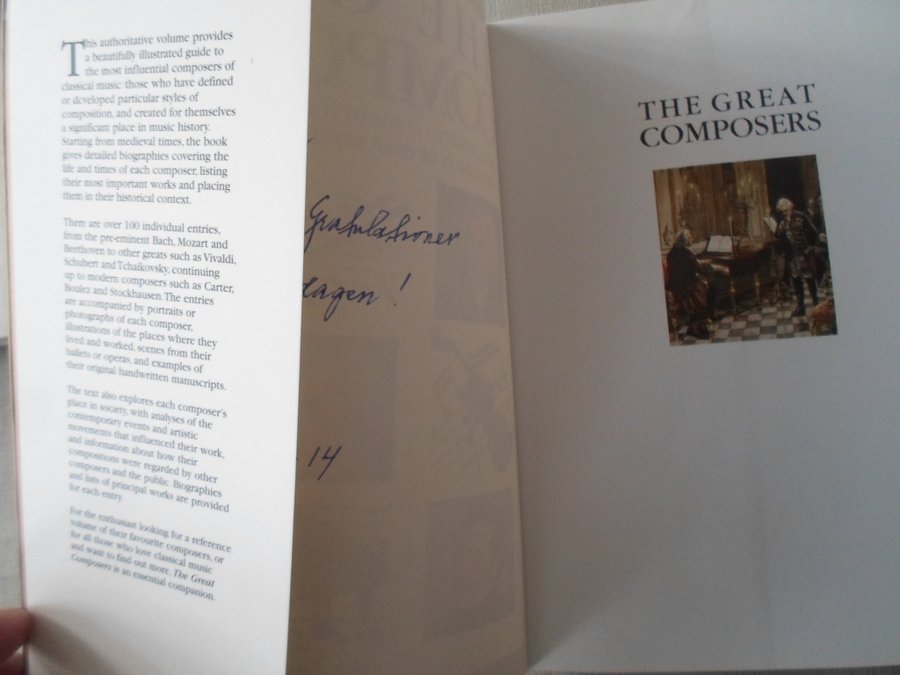 This authoritative volume provides
a beautifully illustrated guide to
the most influential composers of
classical music: those who have defined
or developed particular styles of
composition, and created for themselves
a significant place in music history.
Starting from medieval times, the book
gives detailed biographies covering the
life and times of each composer, listing
their most important works and placing
them in their historical context.
There are over 100 individual entries,
from the pre-eminent Bach, Mozart and
Beethoven to other greats such as Vivaldi,
Schubert and Tchaikovsky, continuing
up to modern composers such as Carter,
Boulez and Stockhausen. The entries
are accompanied by portraits or
photographs of each composer,
illustrations of the places where they
lived and worked, scenes from their
ballets or operas, and examples of
their original handwritten manuscripts.
The text also explores each composer's
place in society, with analyses of the
contemporary events and artistic
movements that influenced their work,
and information about how their
compositions were regarded by other
composers and the public. Biographies
and lists of principal works are provided
for each entry.
For the enthusiast looking for a reference
volume of their favourite composers, or
for all those who love classical music
and want to find out more, The Great
Composers is an essential companion.
Gratulationer
dagen!
- 14
THE GREAT
COMPOSERS